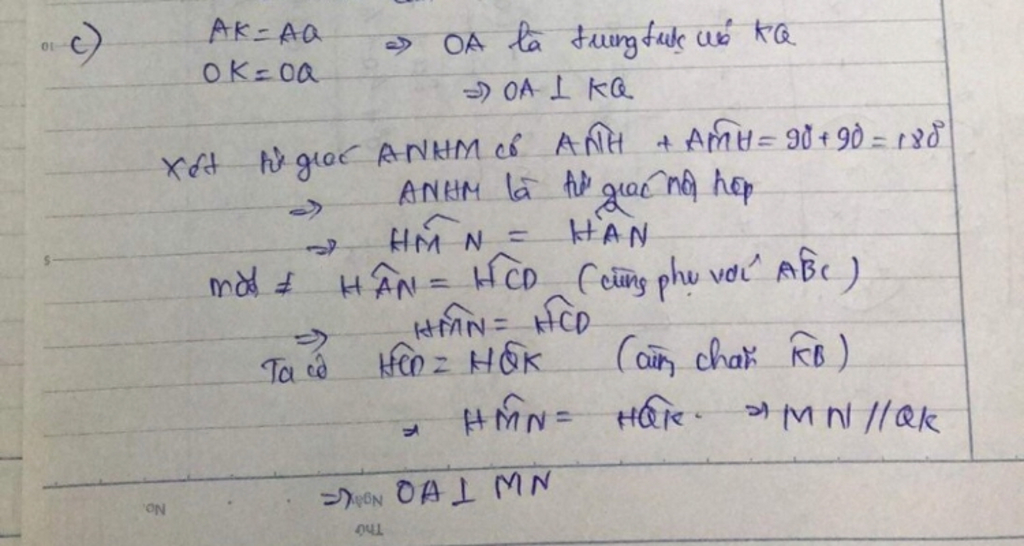 c) AK = AQ ⇒ OA là trung trực của KQ
OK = OQ
⇒ OA ⊥ KQ
Xét tứ giác ANHM có AN̂H + AM̂H = 90 + 90 = 180°
⇒ ANHM là tứ giác nội tiếp
⇒ HM̂N = HÂN
mặt ≠ HÂN = HĈD (cùng phụ với AB̂C)
⇒ HM̂N = HĈD
Ta có HĈD = HQ̂K (cùng chắn K͡B)
⇒ HM̂N = HQ̂K. ⇒ MN // QK
⇒ OA ⊥ MN
No.
Thứ
Ngày